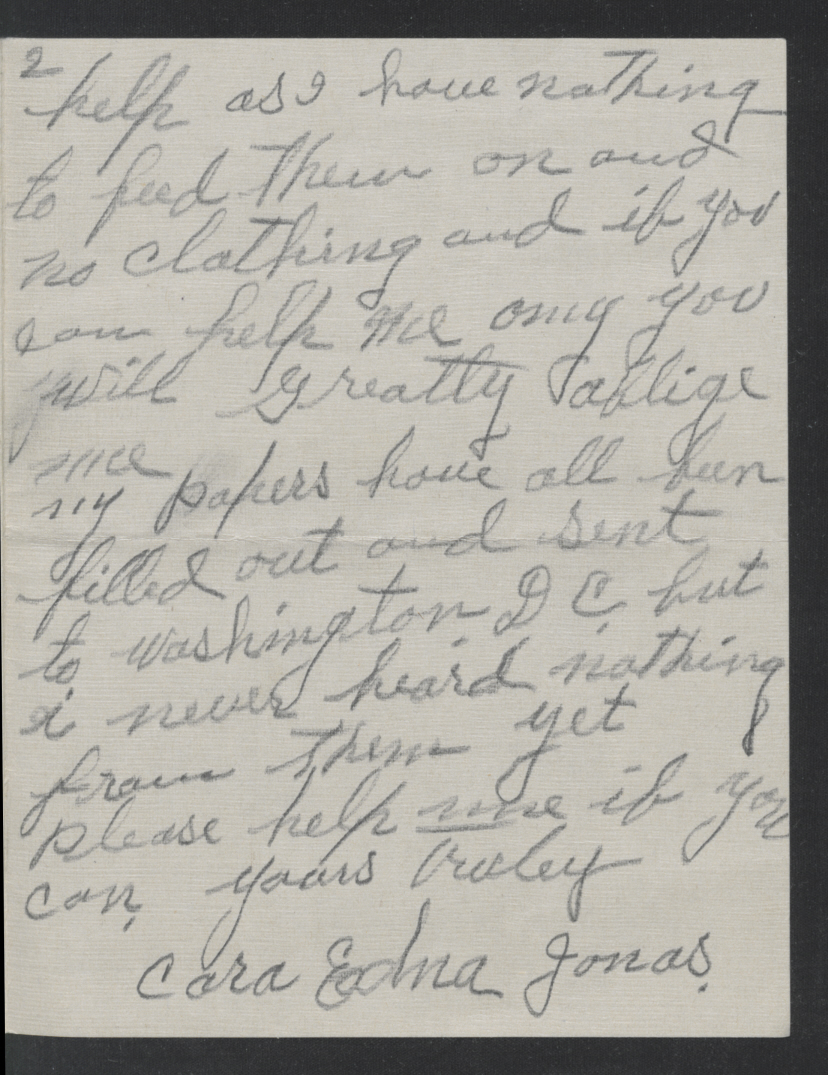 2
help as I have nothing
to feed them on and
no clothing and if you
can help me omy you
will Greatly oblige
me
my papers have all bun
filled out and sent
to washington D C, but
i never heard nothing
from them yet
please help me if you
can, yours truley
Cara Edna Jonas.